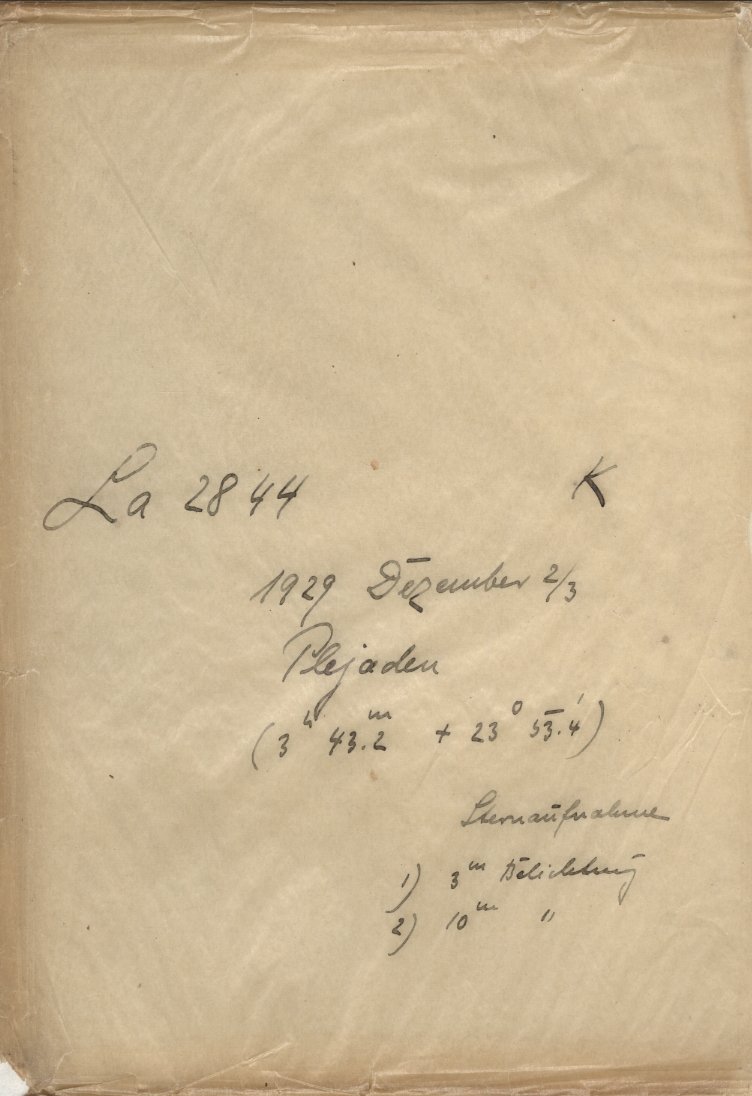 La 2844 K
1929 Dezember 2/3
Plejaden
(3ʰ 43.2ᵐ + 23° 53.4')
Sternaufnahme
1) 3ᵐ Belichtung
2) 10ᵐ "